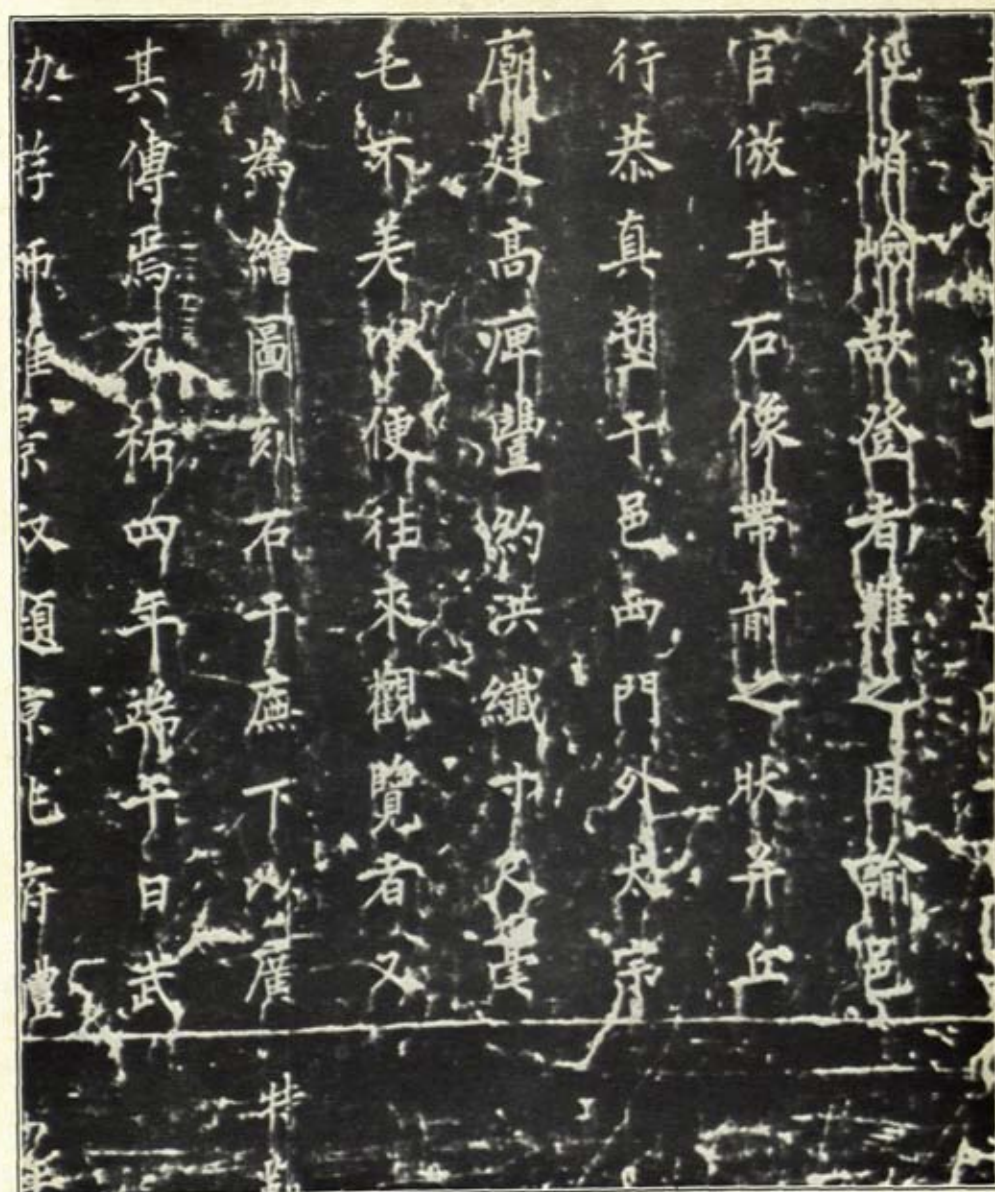 徑峭嶮欲登者難之因諭邑
官倣其石像帶箭之狀并丘
行恭真塑于邑西門外太宗
廟廷高痺豐約洪纖寸尺毫
毛不差以便往來觀覽者又
別為繪圖刻石于廡下以廣
其傳焉元祐四年端午日武
功游師雄景叔題京兆府禮
特